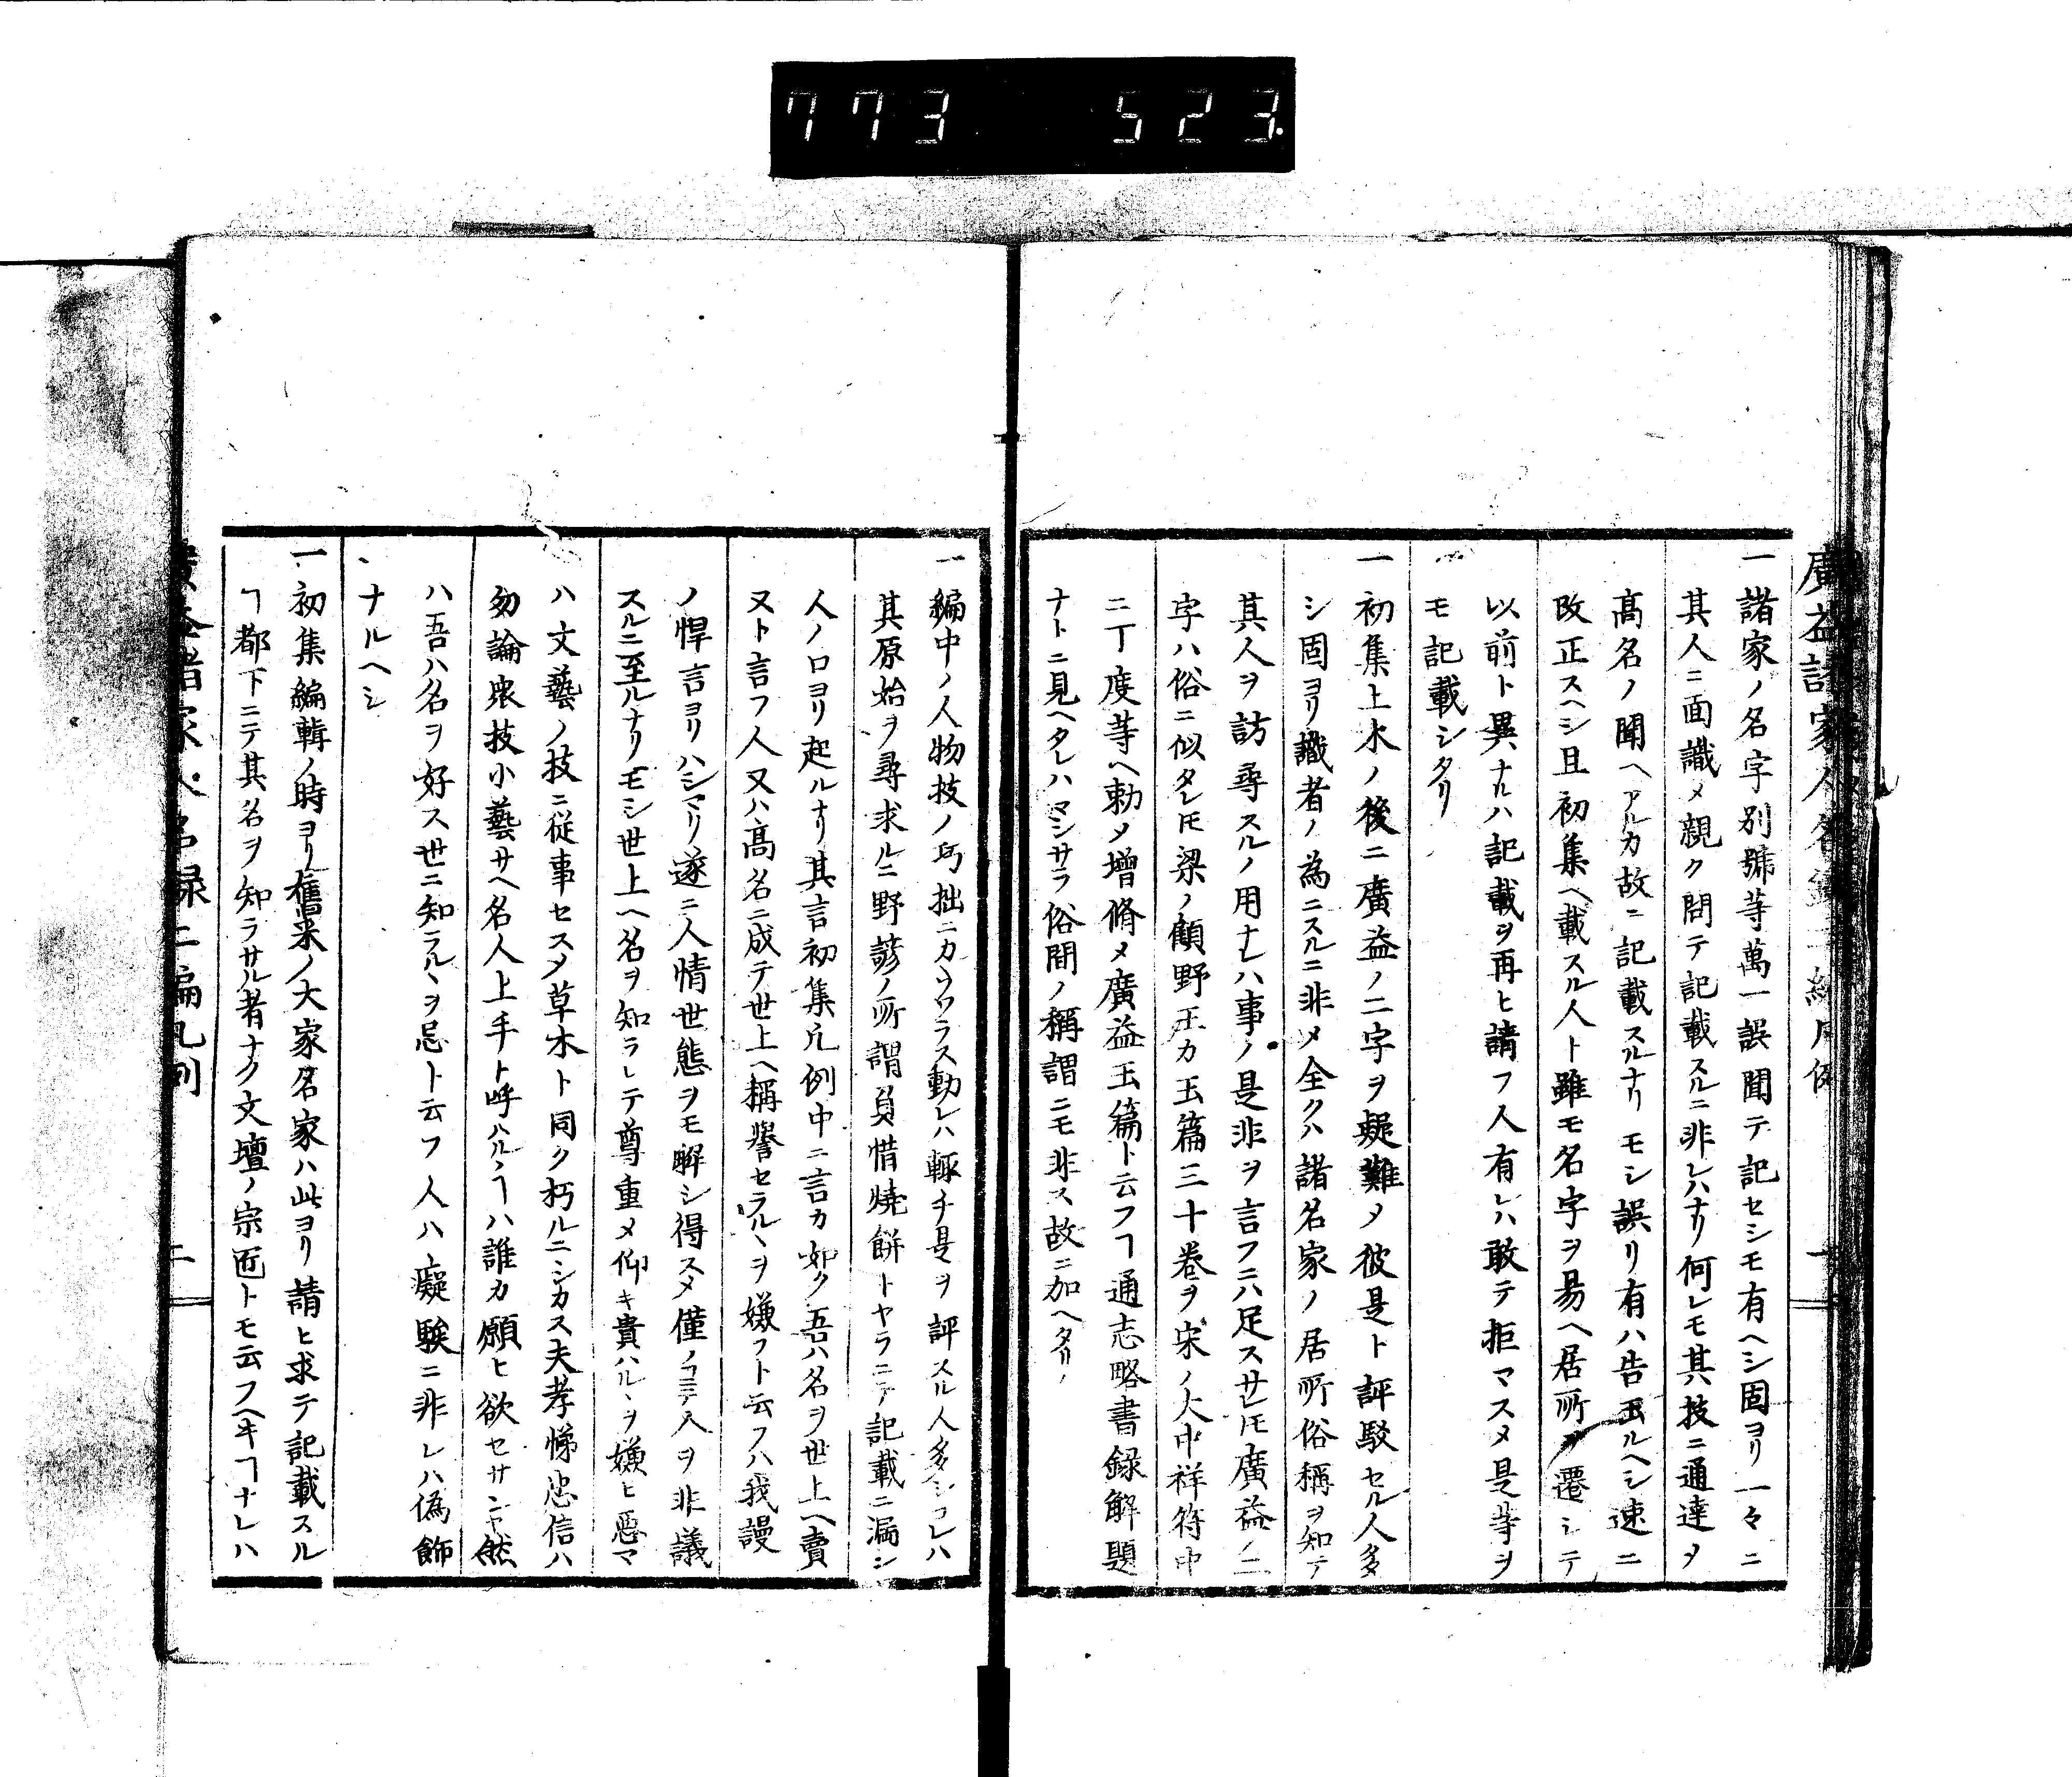 773 523.
一諸家ノ名字別號等萬一誤聞テ記セシモ有ヘシ固ヨリ一々ニ
其人ニ面識メ親ク問テ記載スルニ非レハナリ何レモ其技ニ通達メ
髙名ノ聞ヘアルカ故ニ記載スルナリモシ誤リ有ハ告玉ルヘシ速ニ
改正スヘシ且初集ヘ載スル人ト雖モ名字ヲ易ヘ居所ヲ遷シテ
以前ト異ナルハ記載ヲ再ヒ請フ人有レハ敢テ拒マスメ是等ヲ
モ記載シタリ
一初集上木ノ後ニ廣益ノ二字ヲ疑難メ彼是ト評駁セル人多
シ固ヨリ識者ノ為ニスルニ非メ全クハ諸名家ノ居所俗稱ヲ知テ
其人ヲ訪尋スルノ用ナレハ事ノ是非ヲ言フニハ足スサレモ廣益ノ二
字ハ俗ニ似タレモ梁ノ顧野王カ玉篇三十卷ヲ宋ノ大中祥符中
ニ丁度等ヘ勅メ增脩メ廣益玉篇ト云フヿ通志略書録解題
ナトニ見ヘタレハマシサラ俗間ノ稱謂ニモ非ス故ニ加ヘタリ
廣益諸家人名録二編凡例 一
一編中ノ人物技ノ巧拙ニカヽワラス動レハ輙チ是ヲ評スル人多シコレハ
其原始ヲ尋求ルニ野諺ノ所謂負惜燒餅トヤラニテ記載ニ漏シ
人ノ口ヨリ起ルナリ其言初集凡例中ニ言カ如ク吾ハ名ヲ世上ヘ賣
又ト言フ人又ハ髙名ニ成テ世上ヘ稱譽セラルヽヲ嫌フト云フハ我謾
ノ悍言ヨリハシマリ遂ニ人情世態ヲモ解シ得スメ僅ノコニテ人ヲ非議
スルニ至ルナリモシ世上ヘ名ヲ知ラレテ尊重メ仰キ貴ハルヽヲ嫌ヒ惡マ
ハ文藝ノ技ニ従事セスメ草木ト同ク朽ルニシカス夫孝悌忠信ハ
勿論衆技小藝サヘ名人上手ト呼ハルヽヿハ誰カ願ヒ欲セサンヤ然
ハ吾ハ名ヲ好ス世ニ知ラルヽヲ忌ト云フ人ハ癡騃ニ非レハ偽飾
ナルヘシ
一初集編輯ノ時ヨリ舊來ノ大家名家ハ此ヨリ請ヒ求テ記載スル
ヿ都下ニテ其名ヲ知ラサル者ナク文壇ノ宗匠トモ云フヘキヿナレハ
廣益諸家人名録二編凡例 二